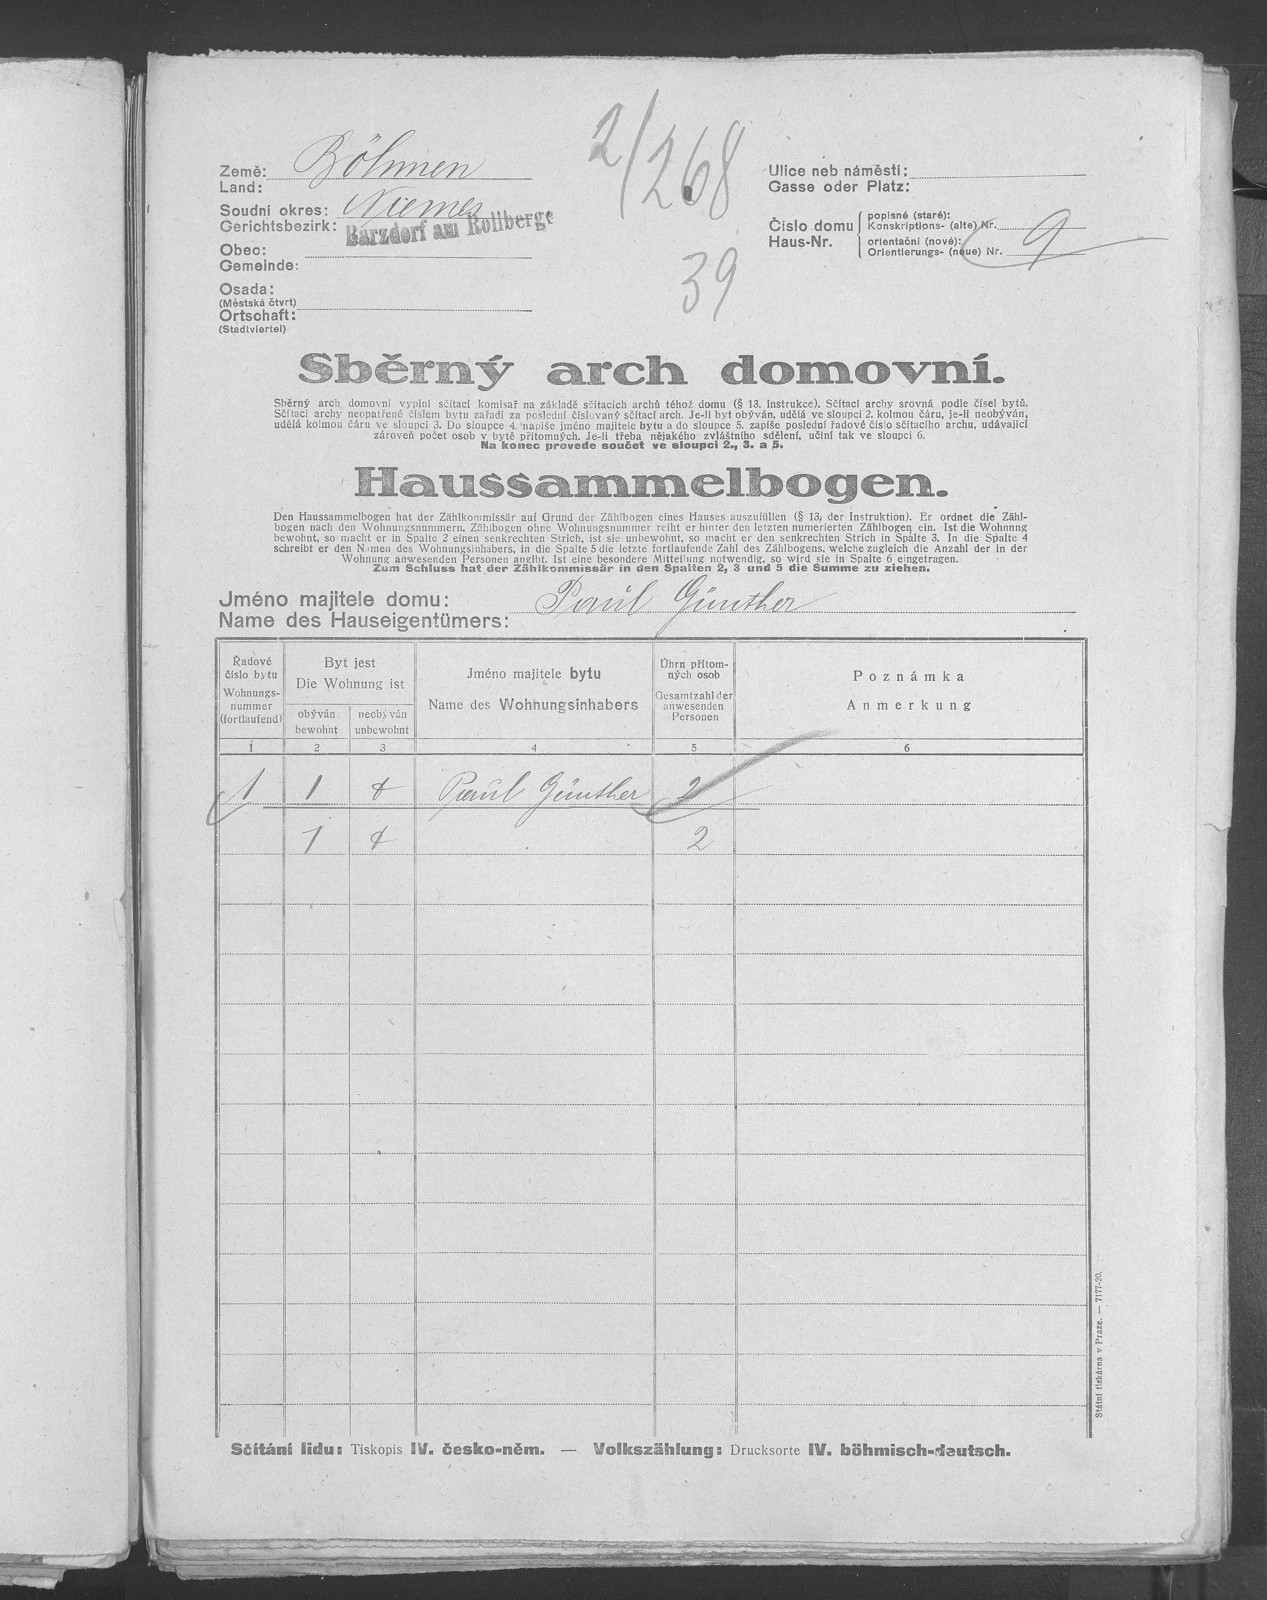 2/268
39
Země: Böhmen
Land:
Soudní okres: Niemes
Gerichtsbezirk: Barzdorf am Rollberge
Obec:
Gemeinde:
Osada:
(Městská čtvrt)
Ortschaft:
(Stadtviertel)
Ulice neb náměstí:
Gasse oder Platz:
Číslo domu
Haus-Nr.
popisné (staré):
Konskriptions- (alte) Nr.
orientační (nové):
Orientierungs- (neue) Nr. 9
Sběrný arch domovní.
Sběrný arch domovní vyplní sčítací komisař na základě sčítacích archů téhož domu (§ 13. instrukce). Sčítací archy srovná podle čísel bytů.
Sčítací archy neopatřené číslem bytu zařadí za poslední číslovaný sčítací arch. Je-li byt obýván, udělá ve sloupci 2. kolmou čáru, je-li neobýván,
udělá kolmou čáru ve sloupci 3. Do sloupce 4. napíše jméno majitele bytu a do sloupce 5. zapíše poslední řadové číslo sčítacího archu, udávající
zároveň počet osob v bytě přítomných. Je-li třeba nějakého zvláštního sdělení, učiní tak ve sloupci 6.
Na konec provede součet ve sloupci 2., 3. a 5.
Haussammelbogen.
Den Haussammelbogen hat der Zählkommissär auf Grund der Zählbogen eines Hauses auszufüllen (§ 13, der Instruktion). Er ordnet die Zähl-
bogen nach den Wohnungsnummern. Zählbogen ohne Wohnungsnummer reiht er hinter den letzten numerierten Zählbogen ein. Ist die Wohnnng
bewohnt, so macht er in Spalte 2 einen senkrechten Strich, ist sie unbewohnt, so macht er den senkrechten Strich in Spalte 3. In die Spalte 4
schreibt er den Namen des Wohnungsinhabers, in die Spalte 5 die letzte fortlaufende Zahl des Zählbogens, welche zugleich die Anzahl der in der
Wohnung anwesenden Personen angibt. Ist eine besondere Mitteilung notwendig, so wird sie in Spalte 6 eingetragen.
Zum Schluss hat der Zählkommissär in den Spalten 2, 3 und 5 die Summe zu ziehen.
Jméno majitele domu: Paul Günther
Name des Hauseigentümers:
Řadové číslo bytu
Wohnungs-nummer (fortlaufend)
Byt jest
Die Wohnung ist
obýván
bewohnt
neobýván
unbewohnt
Jméno majitele bytu
Name des Wohnungsinhabers
Úhrn přítom-ných osob
Gesamtzahl der anwesenden Personen
Poznámka
Anmerkung
1 2 3 4 5 6
1 1 Paul Günther 2
1 2
Sčítání lidu: Tiskopis IV. česko-něm. — Volkszählung: Drucksorte IV. böhmisch-deutsch.
Státní tiskárna v Praze. — 7177-20.